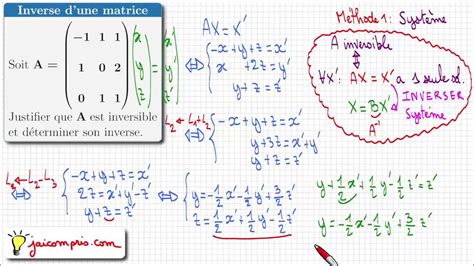 Inverse d'une matrice
Soit A = ( -1 1 1
1 0 2
0 1 1 ) ( x
y
z ) = ( x'
y'
z' )
Justifier que A est inversible
et déterminer son inverse.
AX = X'
⇔ { -x+y+z = x'
x 2z = y'
y+z = z'
L₂ ← L₁+L₂
⇔ { -x+y+z = x'
y+3z = x'+y'
y+z = z'
L₃ ← L₂-L₃
⇔ { -x+y+z = x'
2z = x'+y'-z'
y+z = z'
⇔ { y = -1/2 x' - 1/2 y' + 3/2 z'
z = 1/2 x' + 1/2 y' - 1/2 z'
Méthode 1: Système
A inversible
⇕
∀X' AX = X' a 1 seule sol.
INVERSER
Système
X = BX'
A⁻¹
y + 1/2 x' + 1/2 y' - 1/2 z' = z'
y = -1/2 x' - 1/2 y' + 3/2 z'
jaicompris.com